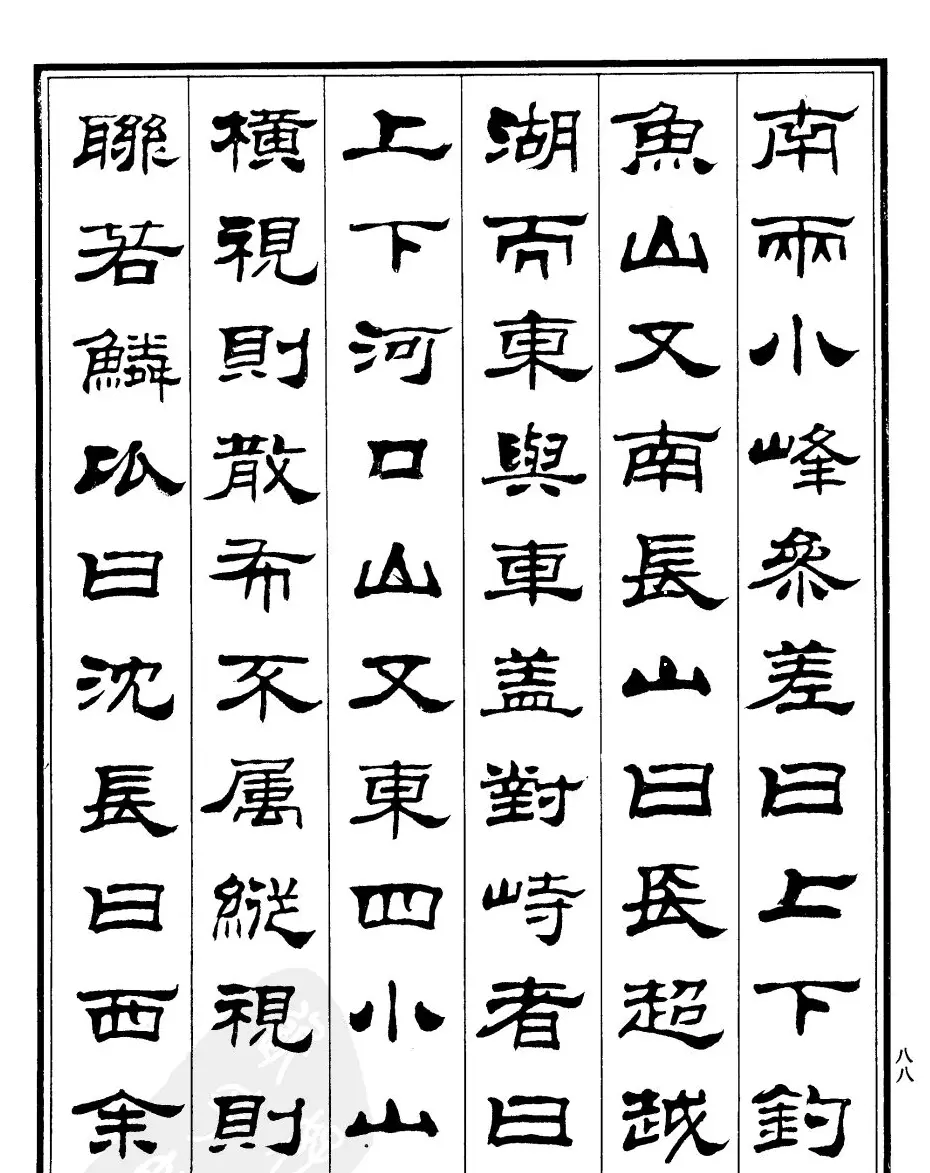 南兩小峰參差曰上下釣
魚山又南長山曰長超越
湖而東與車盖對峙者曰
上下河口山又東四小山
橫視則散布不属縱視則
聯若鱗以曰沈長曰西余
八八